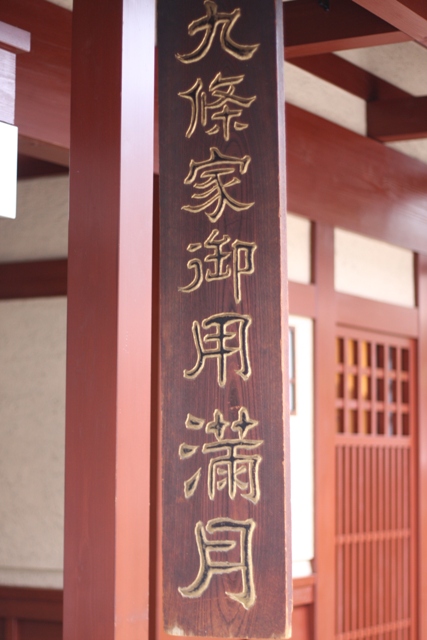 九條家御用満月